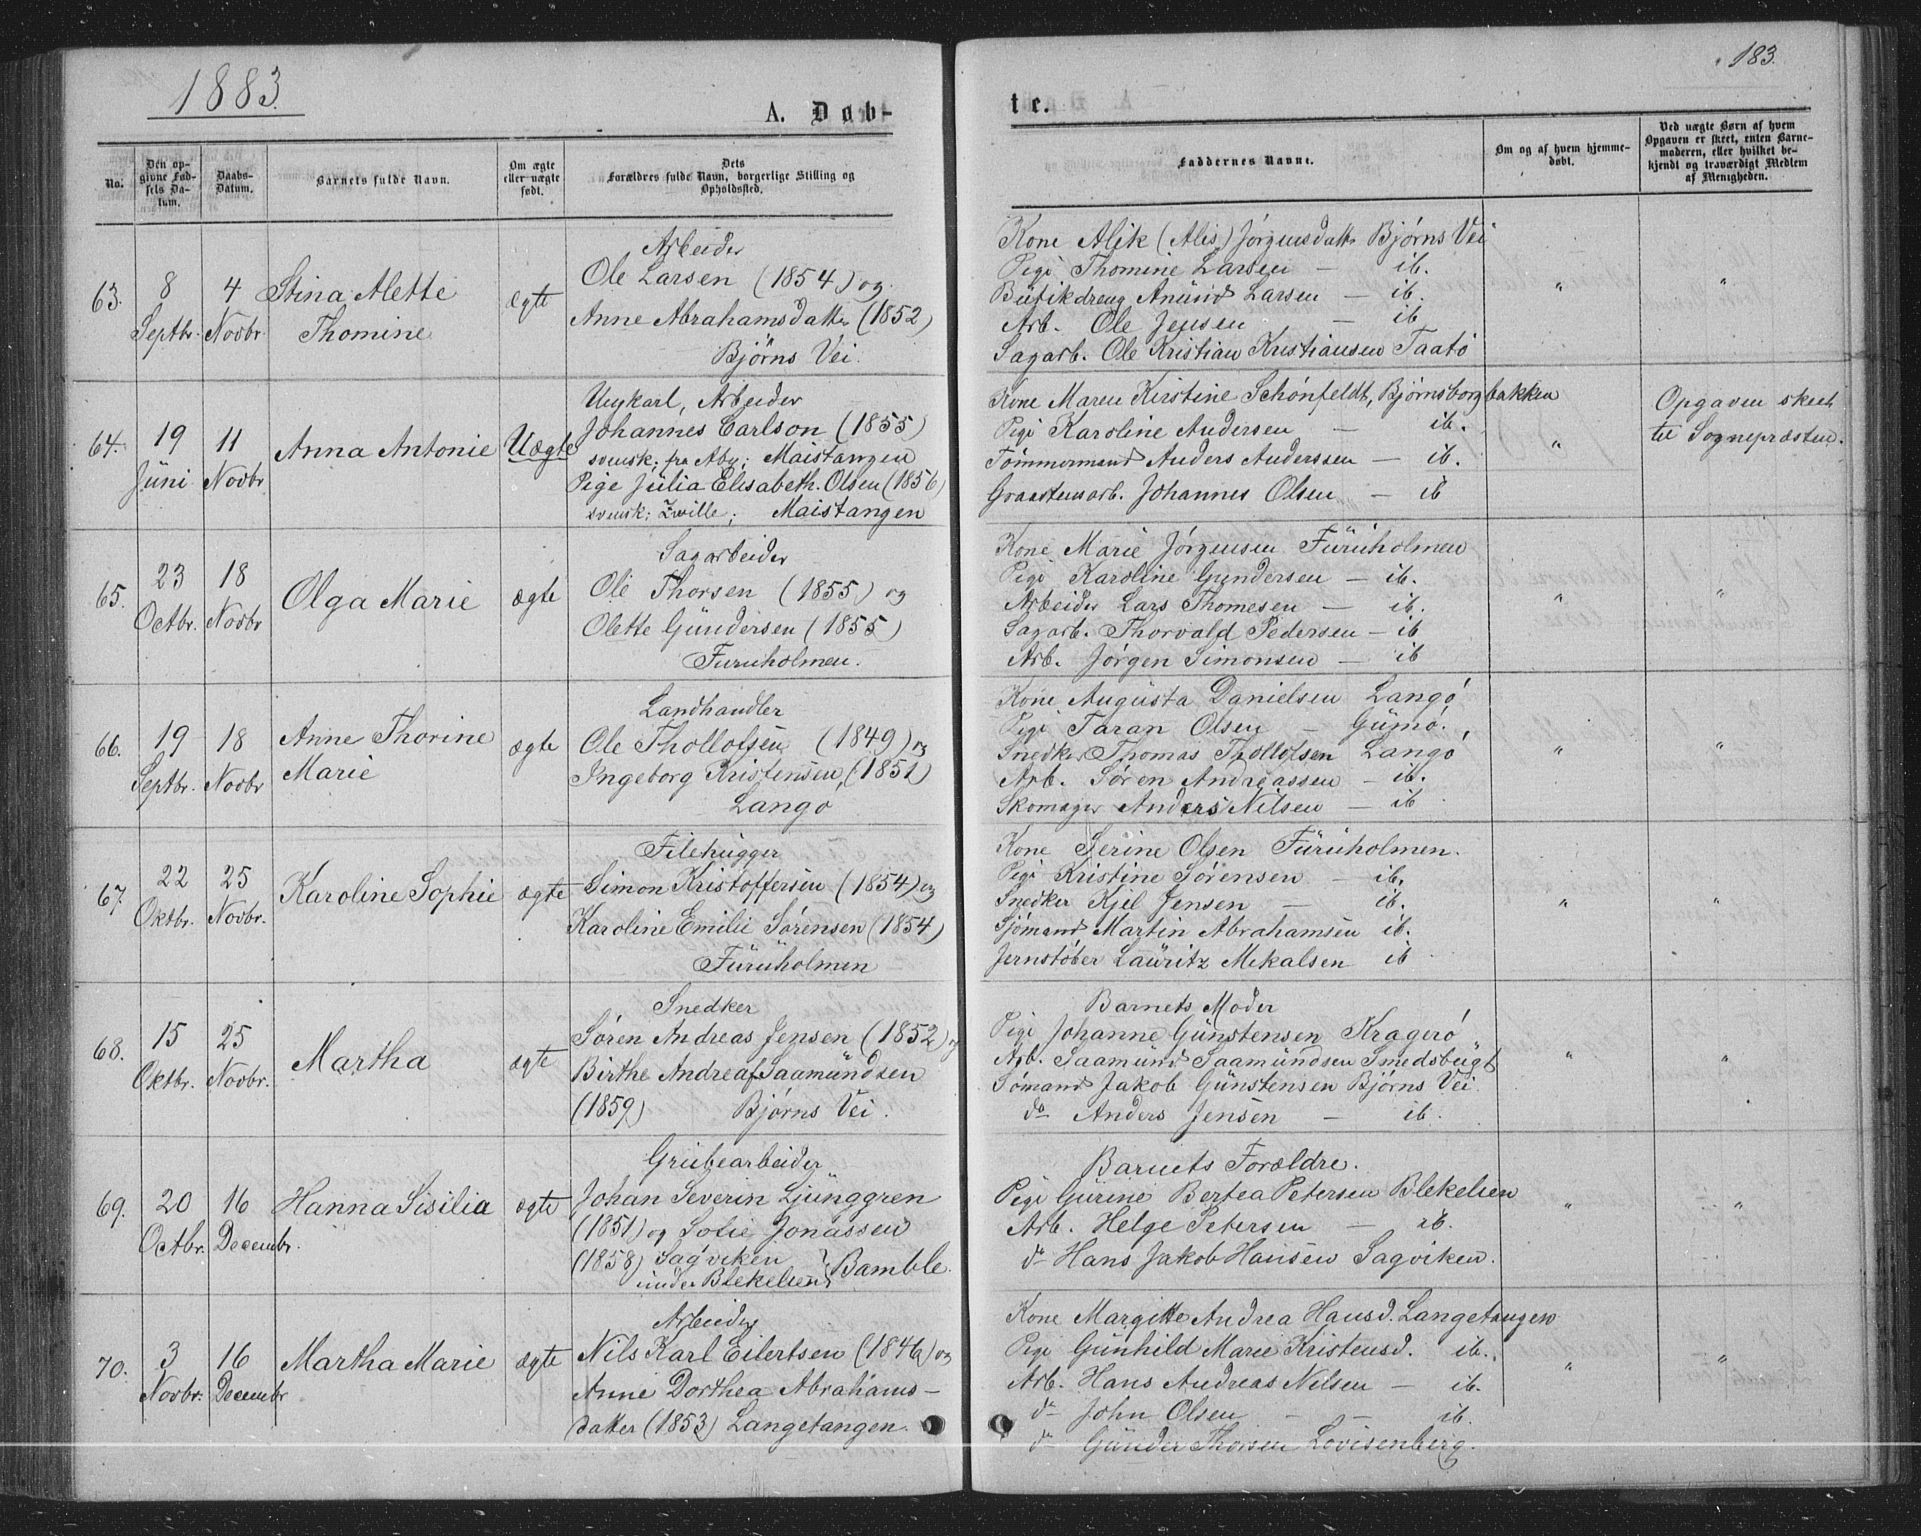 1883.
183.
A. Døb-
te.
No.
Den op-
givne Fød-
sels Da-
tum.
Daabs-
Datum.
Barnets fulde Navn.
Om ægte
eller uægte
født.
Dets
Forældres fulde Navn, borgerlige Stilling og
Opholdssted.
Faddernes Navne.
Om og af hvem hjemme-
døbt.
Ved uægte Børn af hvem
Opgaven er skeet, enten Barne-
moderen, eller hvilket be-
kjendt og troværdigt Medlem
af Menigheden.
63.
8
Septbr.
4
Novbr
Stina Alette
Thomine
ægte
Arbeider
Ole Larsen (1854) og
Anne Abrahamsdatter (1852)
Bjørns Vei.
Kone Alik (Alis) Jørgensdatter Bjørns Vei
Pige Thomine Larsen — ib.
Butikdreng Larsen — ib.
Arb. Ole Jensen — ib
Sagarb. Ole Kristian Kristiansen Taatø
"
"
64.
19
Juni
11
Novbr
Anna Antonie
Uægte
Ungkarl, Arbeider
Johannes Carlson (1855)
svensk; fra Aby; Maistangen
Pige Julia Elisabeth Olsen (1856)
svensk; Zwille; Maistangen
Kone Maren Kirstine Schönfeldt, Bjørnsborgbakken
Pige Karoline Andersen — ib.
Tømmermand Anders Anderssen — ib.
Graastensarb. Johannes Olsen — ib
"
Opgaven skeet
til Sognepræsten.
65.
23
Octbr.
18
Novbr
Olga Marie
ægte
Sagarbeider
Ole Thorsen (1855) og
Olette Gundersen (1855)
Furuholmen.
Kone Marie Jørgensen Furuholmen
Pige Karoline Gundersen — ib.
Arbeider Lars Thomesen — ib.
Sagarb. Thorvald Pedersen — ib
Arb. Jørgen Simonsen — ib
"
"
66.
19
Septbr.
18
Novbr
Anne Thorine
Marie
ægte
Landhandler
Ole Thollofsen (1849) og
Ingeborg Kristensen, (1851)
Langø
Kone Augusta Danielsen Langø
Pige Taran Olsen — Gumø.
Snedker Thomas Thollofsen Langø
Arb. Søren Andreassen — ib.
Skomager Anders Nilsen — ib
"
"
67.
22
Oktbr.
25
Novbr.
Karoline Sophie
ægte
Filehugger
Simon Kristoffersen (1854) og
Karoline Emilie Sørensen (1854)
Furuholmen
Kone Serine Olsen Furuholmen.
Pige Kristine Sørensen — ib.
Snedker Kjel Jensen — ib.
Sjømand Martin Abrahamsen ib.
Jernstøber Lauritz Mekalsen ib
"
"
68.
15
Oktbr.
25
Novbr.
Martha
ægte
Snedker
Søren Andreas Jensen (1852) og
Birthe Andrea Saamundsen
(1859) Bjørns Vei.
Barnets Moder
Pige Johanne Gunstensen Kragerø
Arb. Saamund Saamundsen Smedsbugt
Sømand Jakob Gunstensen Bjørns Vei
do Anders Jensen — ib.
"
"
69.
20
Octbr.
16
Decembr.
Hanna Sisilia
ægte
Grubearbeider
Johan Severin Ljunggren
(1851) og Sofie Jonassen
(1858) Sagviken
under Blekelien } Bamble.
Barnets Forældre.
Pige Gurine Bertea Petersen Blekelien
Arb. Helge Petersen — ib.
do Hans Jakob Hansen Sagviken.
"
"
70.
3
Novbr.
16
Decembr
Martha Marie
ægte
Arbeider
Nils Karl Eilertsen (1846) og
Anne Dorthea Abrahams-
datter (1853) Langetangen.
Kone Margitte Andrea Hansd. Langetangen
Pige Gunhild Marie Kristensd. ib.
Arb. Hans Andreas Nilsen — ib.
do John Olsen — — ib.
do Gunder Thorsen Lovisenberg.
"
"